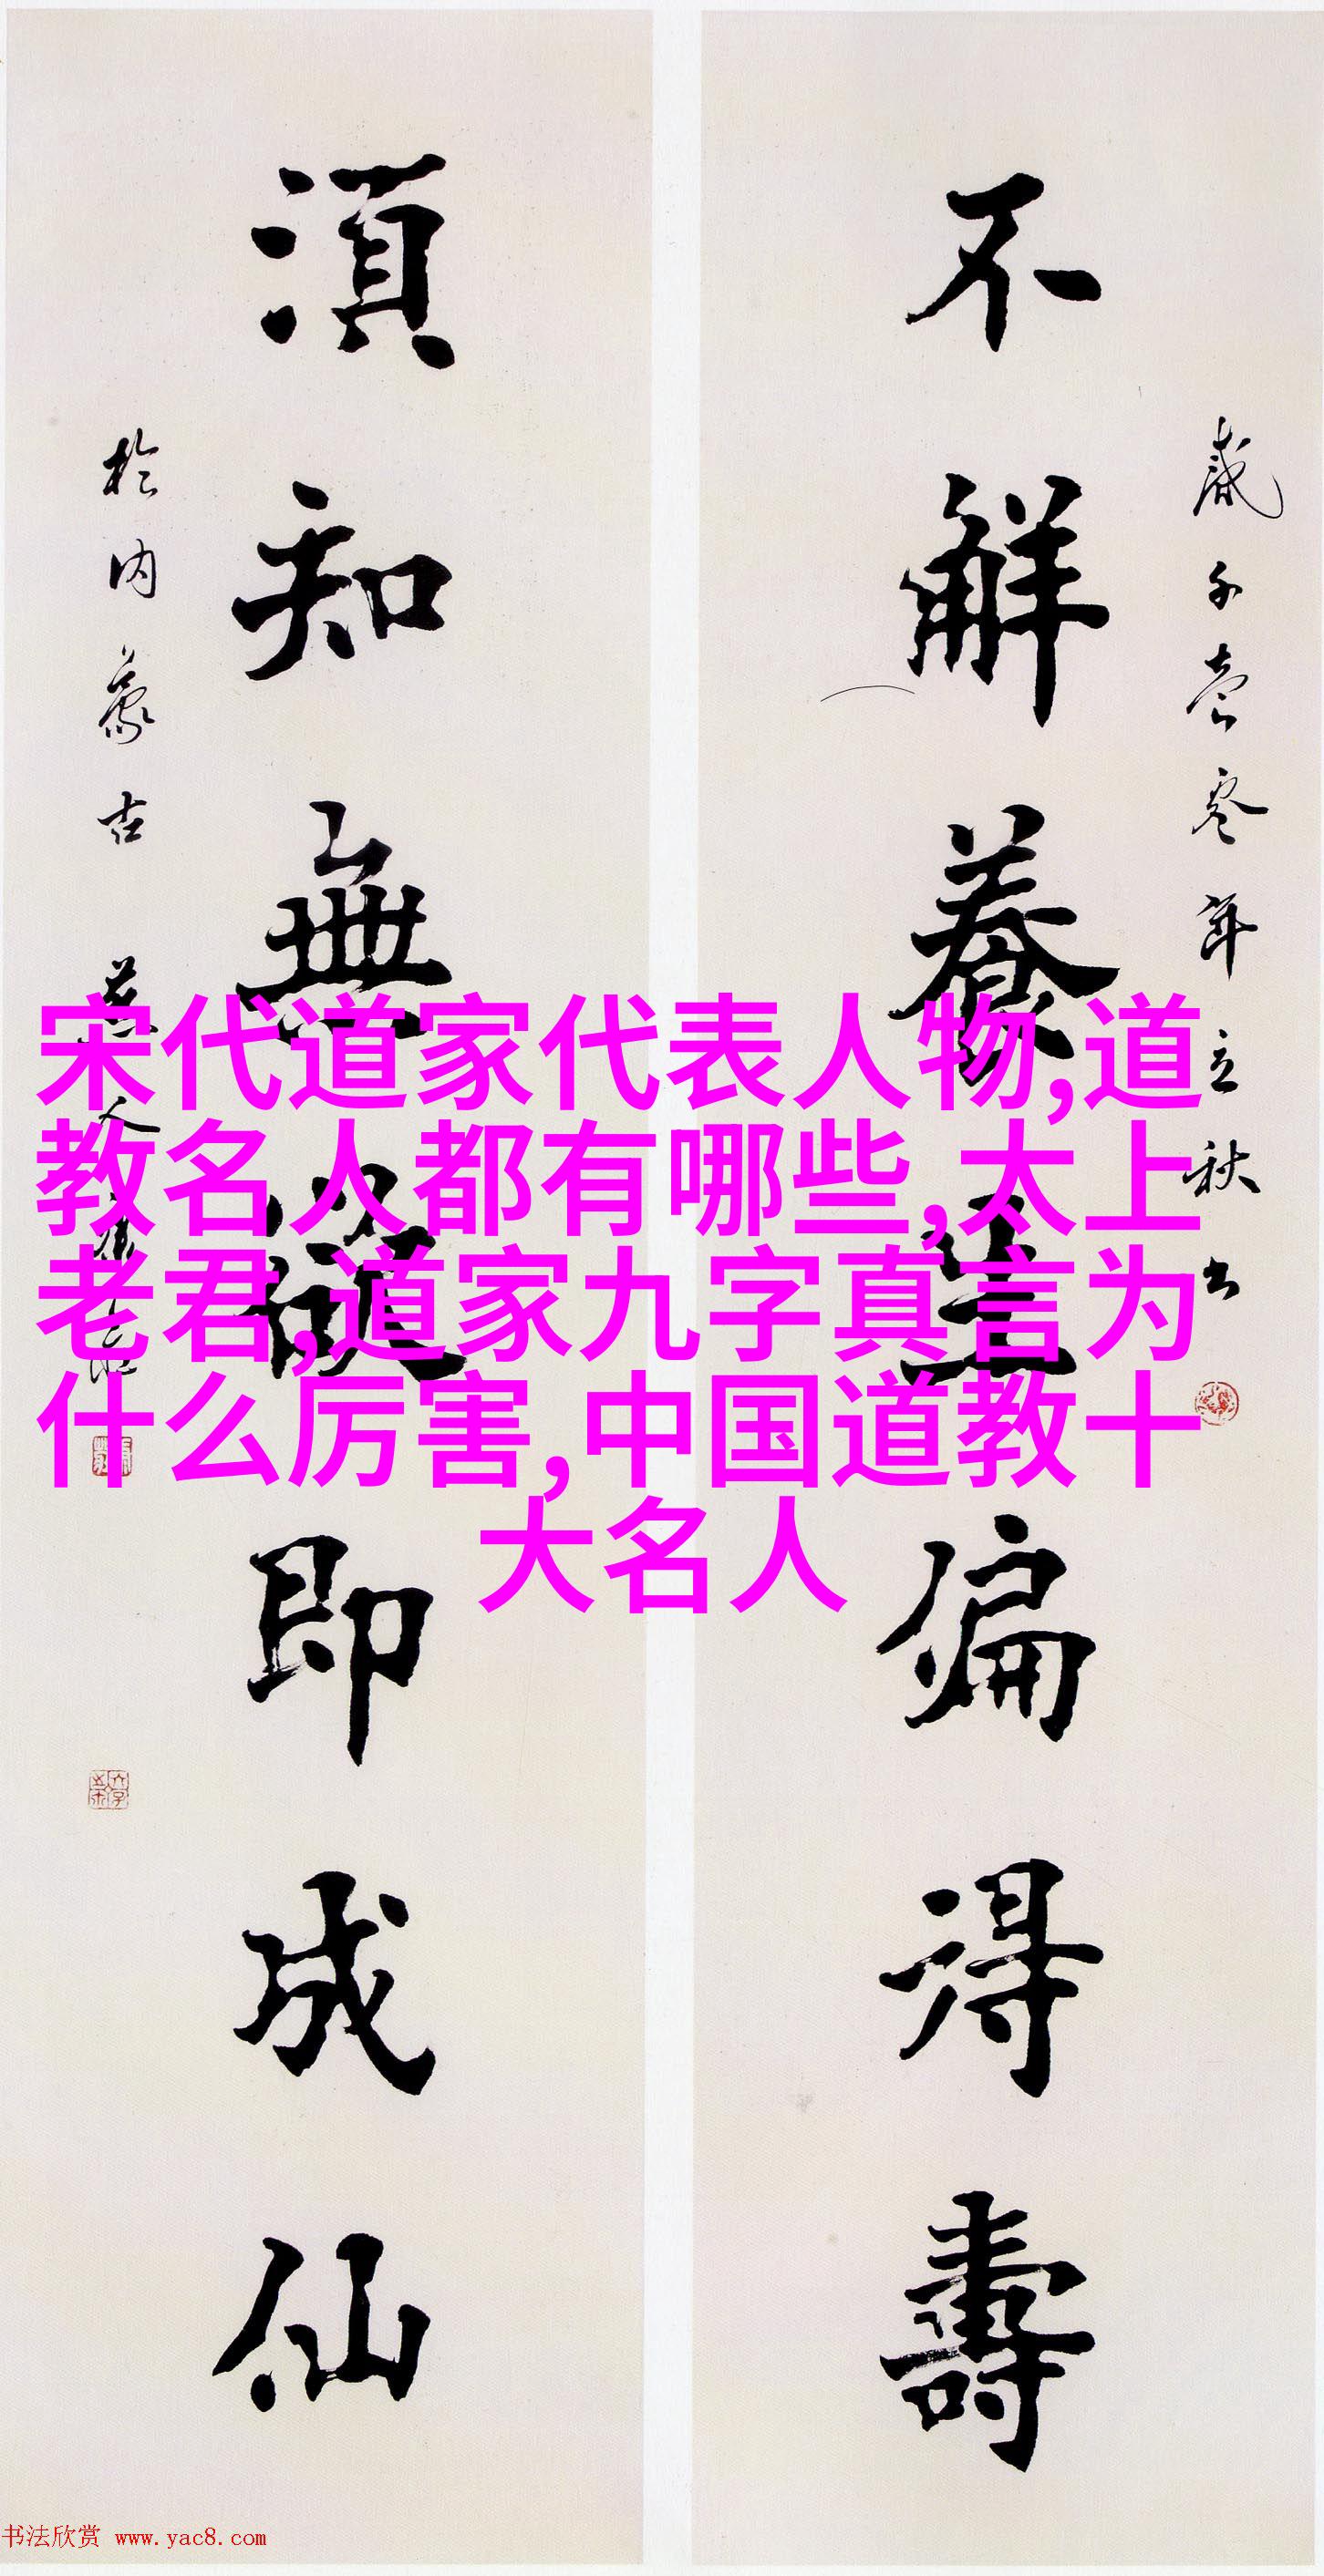 不解養生偏得壽
歲千壹零年立秋書
須知無
即成仙
於内蒙古
宋代道家代表人物,道
教名人都有哪些,太上
老君,道家九字真言为
什么厉害,中国道教十
大名人
书法欣赏 www.yac8.com